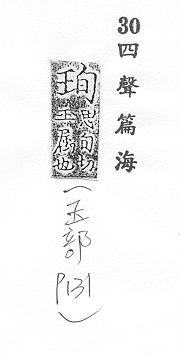 30 四聲篇海
珣 思旬切
玉屬也
(玉部 P131)